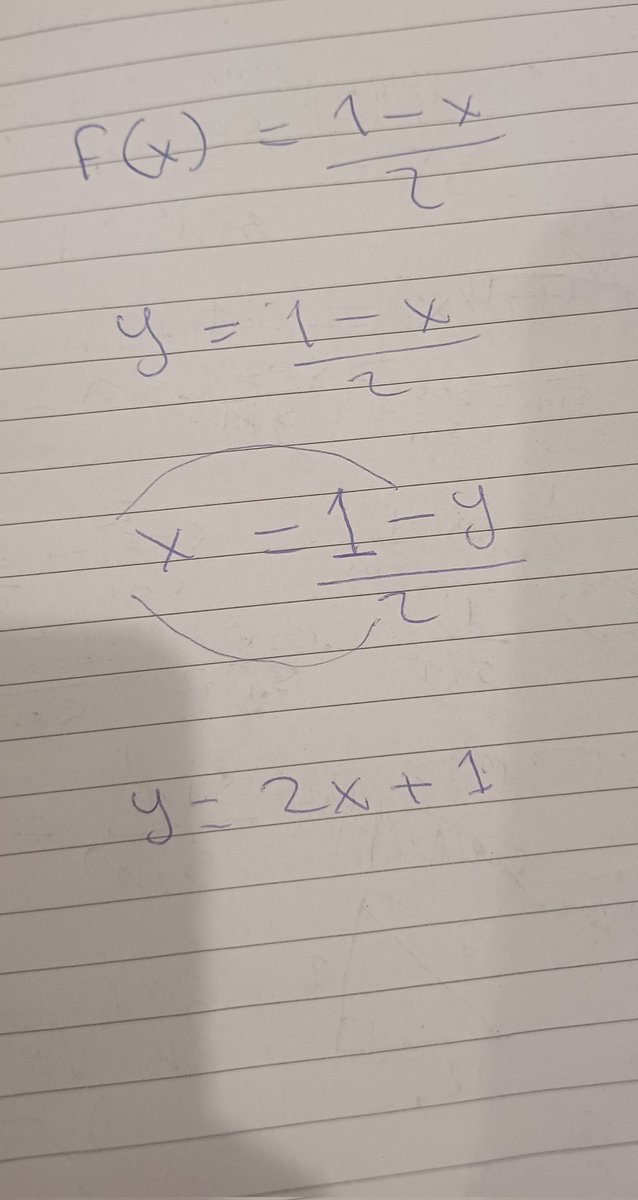 F(x) = (1 - x)/2
y = (1 - x)/2
x = (1 - y)/2
y = 2x + 1